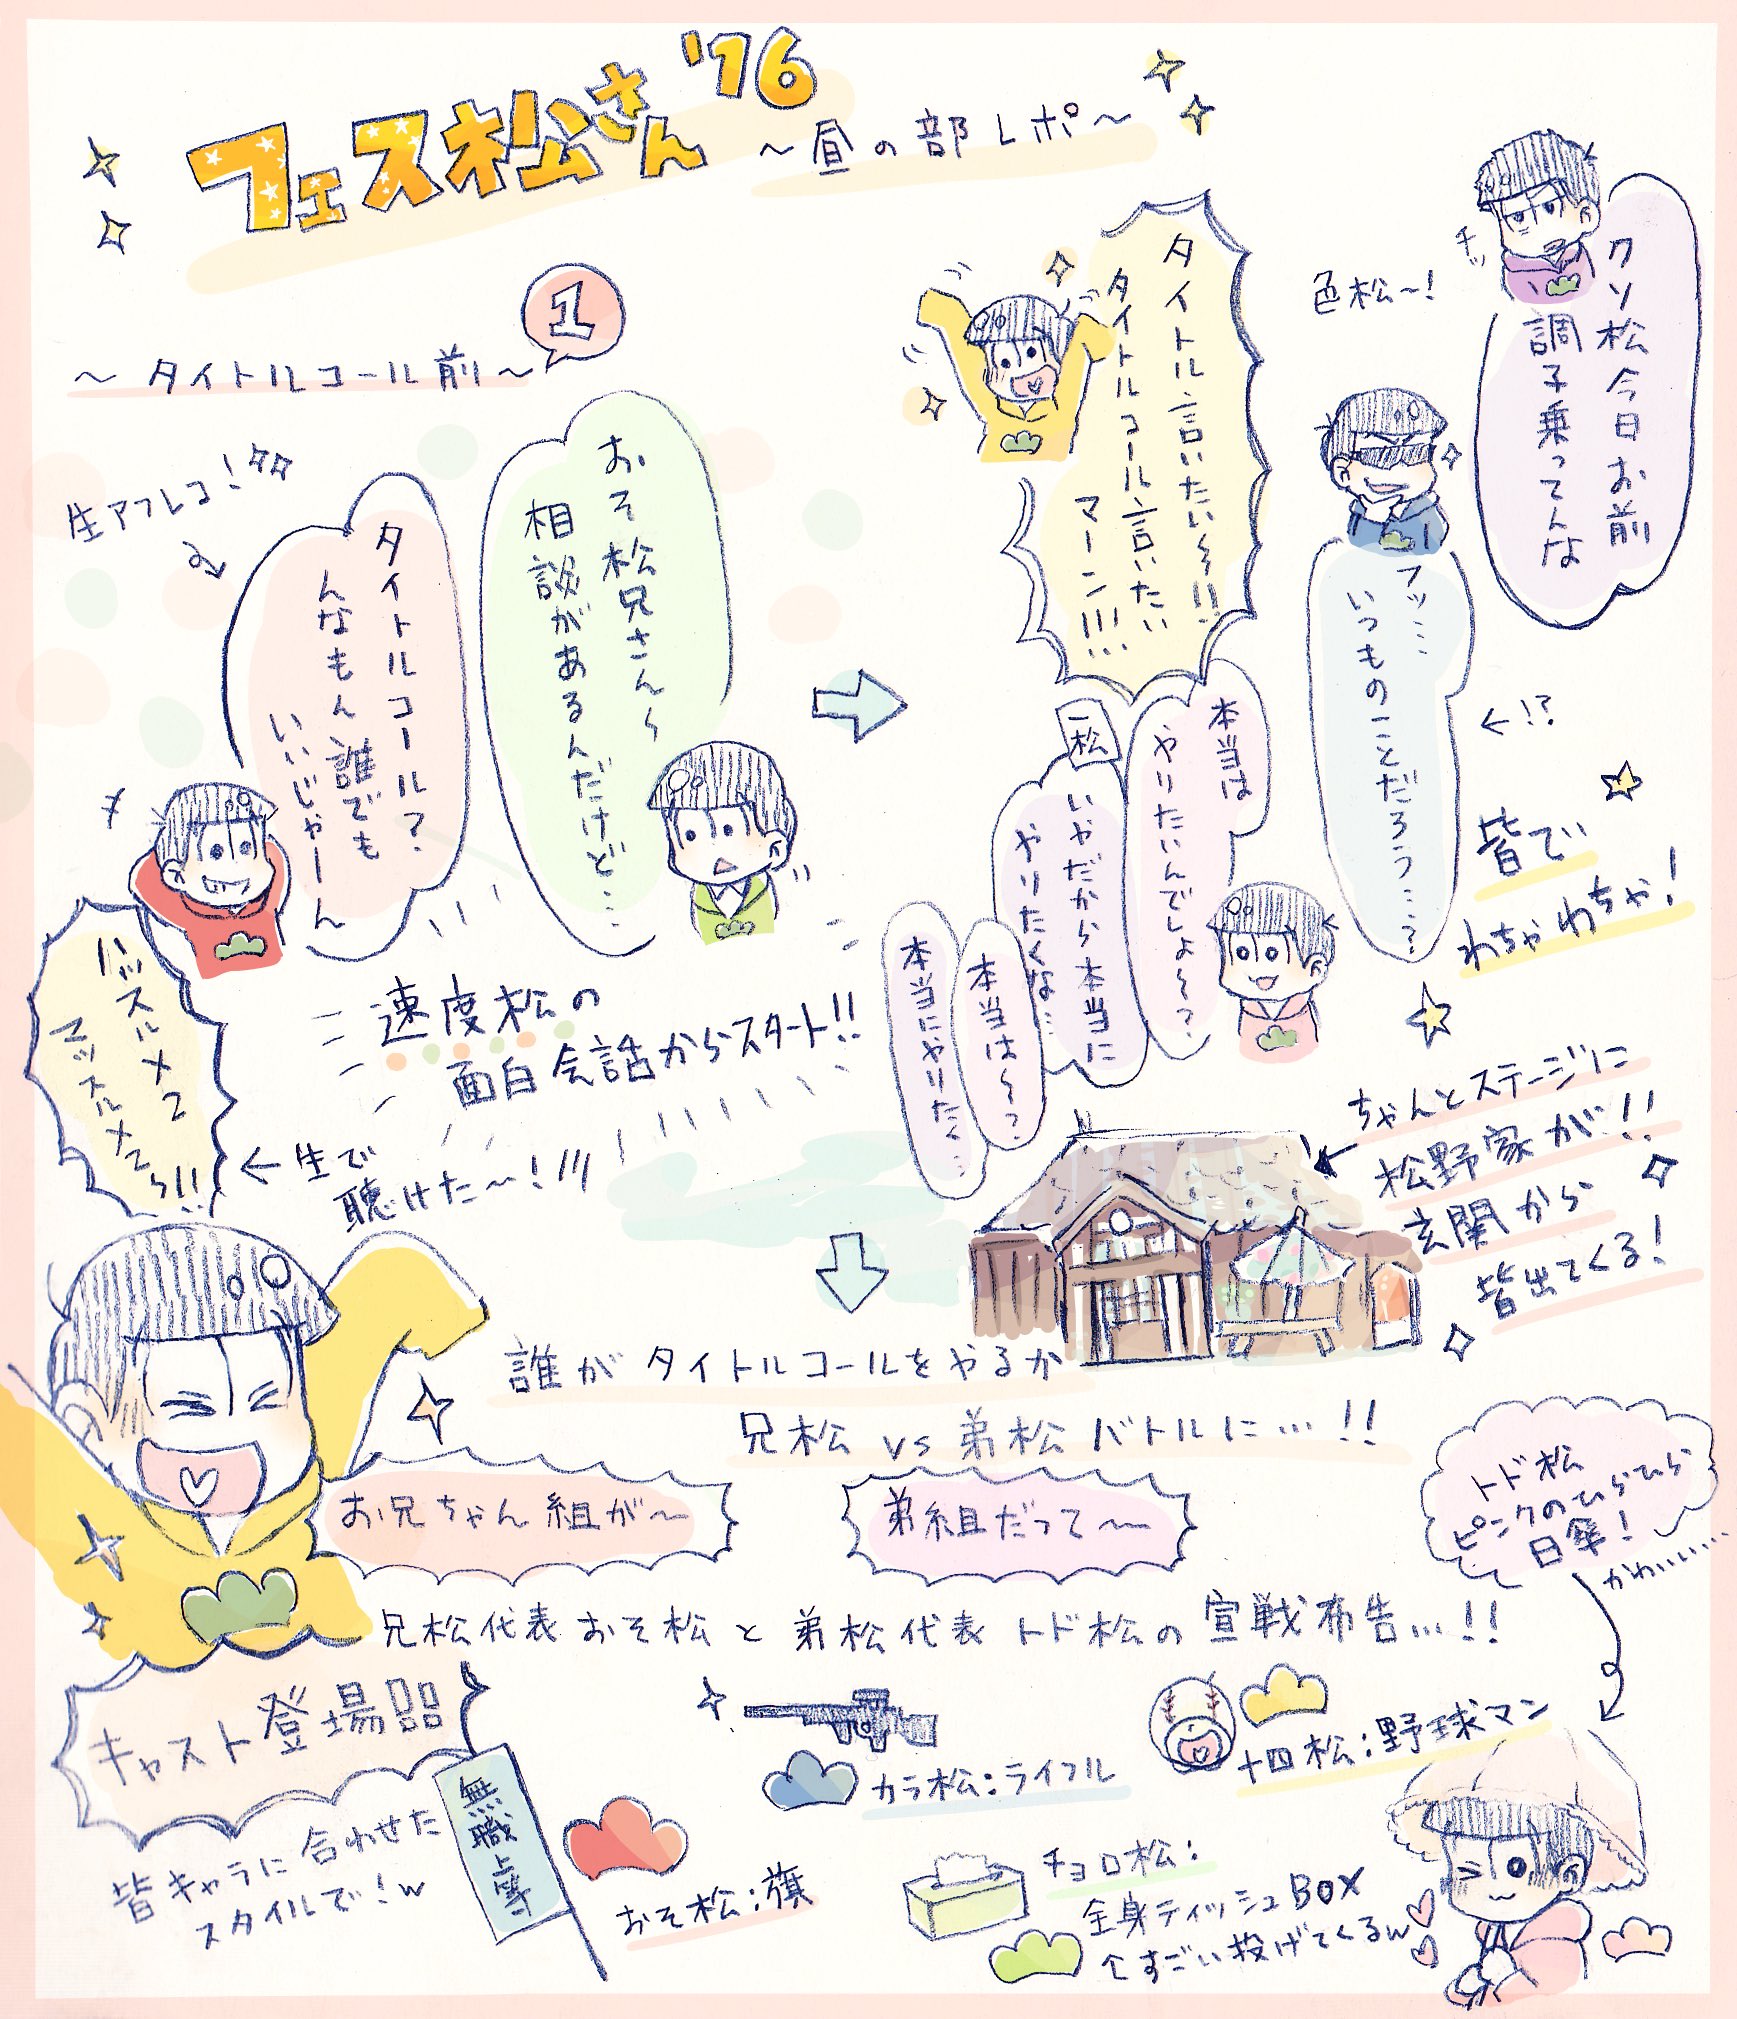 フェス松さん'16
～昼の部レポ～
～タイトルコール前～
1
生アフレコ!
おそ松兄さん～
相談があるんだけど…
タイトルコール?
んなもん誰でも
いいじゃーん
速度松の
面白会話からスタート!!
タイトル言いたい～!!
タイトルコール言いたい
マーン!!!
色松～!
チッ
クソ松今日お前
調子乗ってんな
フッ…
いつものことだろう…?
←!?
皆で
わちゃわちゃ!
本当は
やりたいんでしょ～?
一松
いやだから本当に
やりたくな…
本当は～?
本当にやりたく…
ハッスルメッスル
マッスルメッスル!!
←生で
聴けた～!!!!
ちゃんとステージに
松野家が!!
玄関から
皆出てくる!
誰がタイトルコールをやるか
兄松vs弟松バトルに…!!
お兄ちゃん組が～
弟組だって～
兄松代表おそ松と弟松代表トド松の宣戦布告…!!
トド松
ピンクのひらひら
日傘!
かわいい…
キャスト登場
皆キャラに合わせた
スタイルで!w
無職上等
おそ松:旗
カラ松:ライフル
十四松:野球マン
チョロ松:
全身ティッシュBOX
すごい投げてくるw